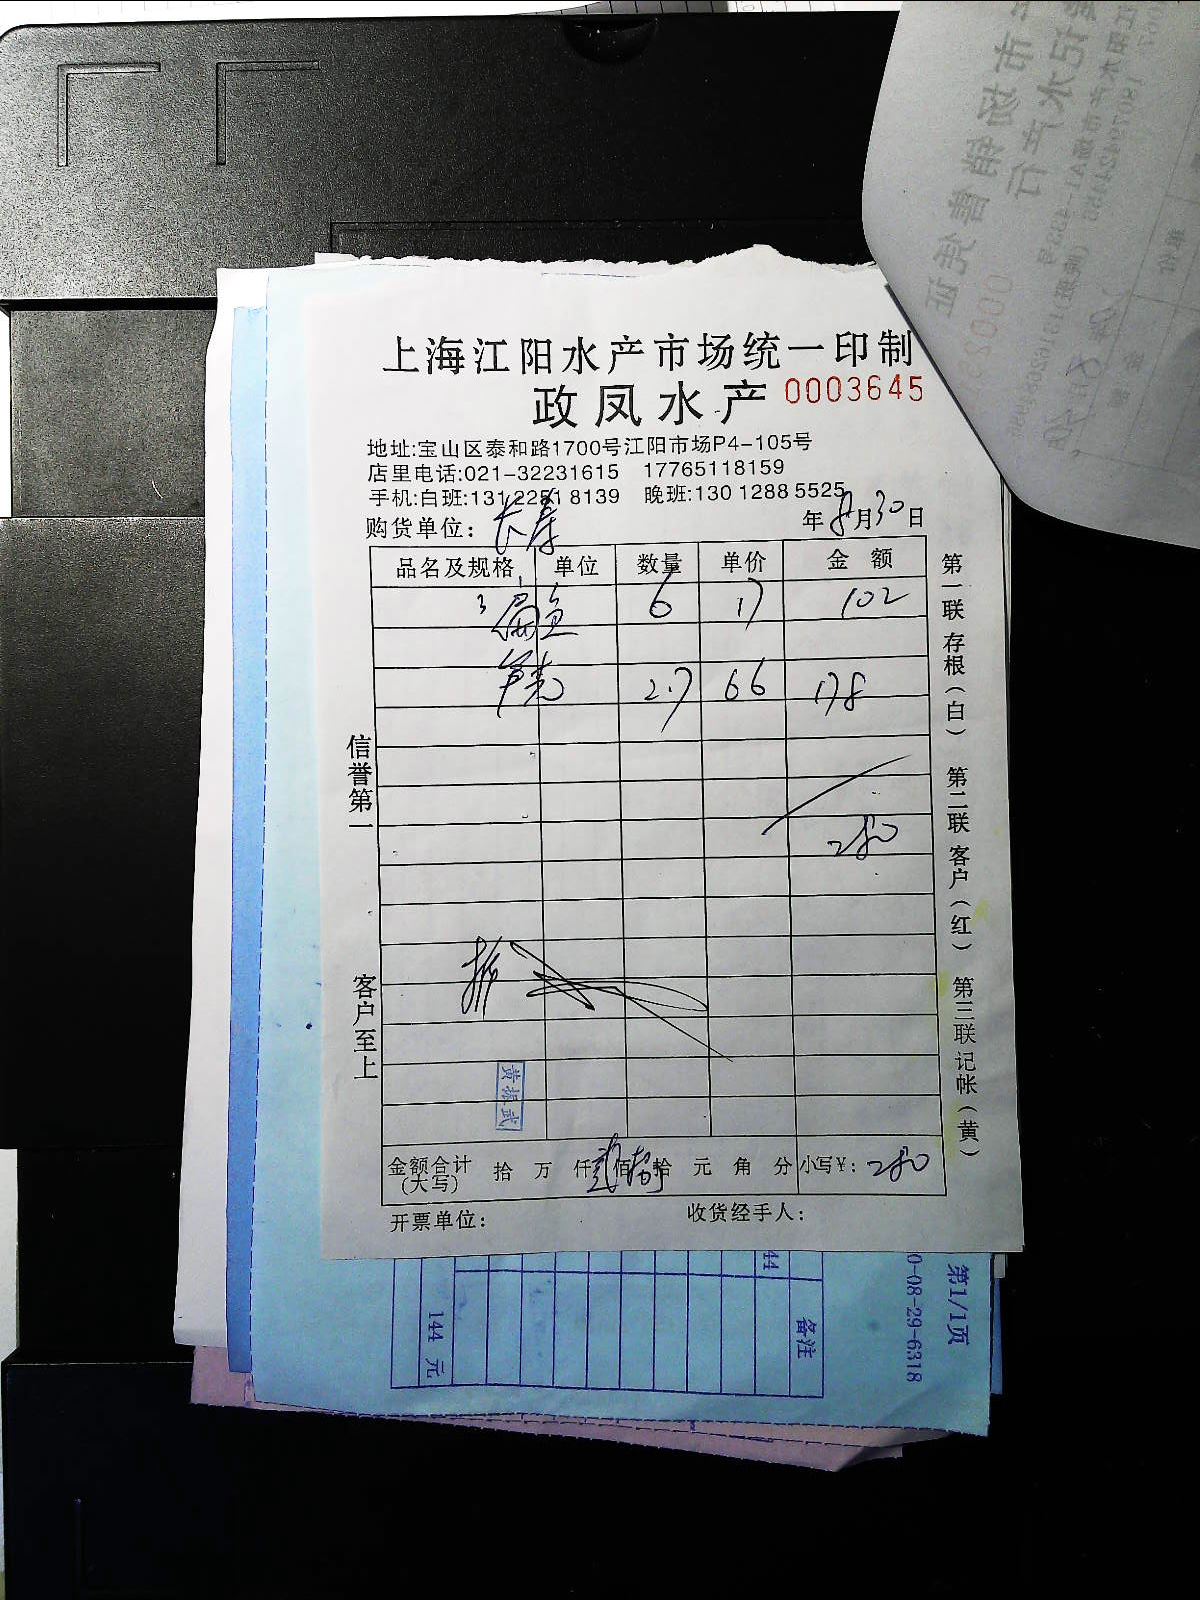 上海江阳水产市场统一印制
政凤水产 0003645
地址:宝山区泰和路1700号江阳市场P4-105号
店里电话:021-32231615 17765118159
手机:白班:131 2251 8139 晚班:130 1288 5525
购货单位: 长寿 年 8月30日
品名及规格 单位 数量 单价 金额
扁鱼 6 17 102
2.7 66 178
280
黄振武
金额合计(大写) 拾 万 仟 贰佰捌拾 元 角 分 小写¥: 280
开票单位: 收货经手人:
信誉第一
客户至上
第一联 存根(白) 第二联 客户(红) 第三联 记帐(黄)
144 元
44
备注
0-08-29-6318
第1/1页